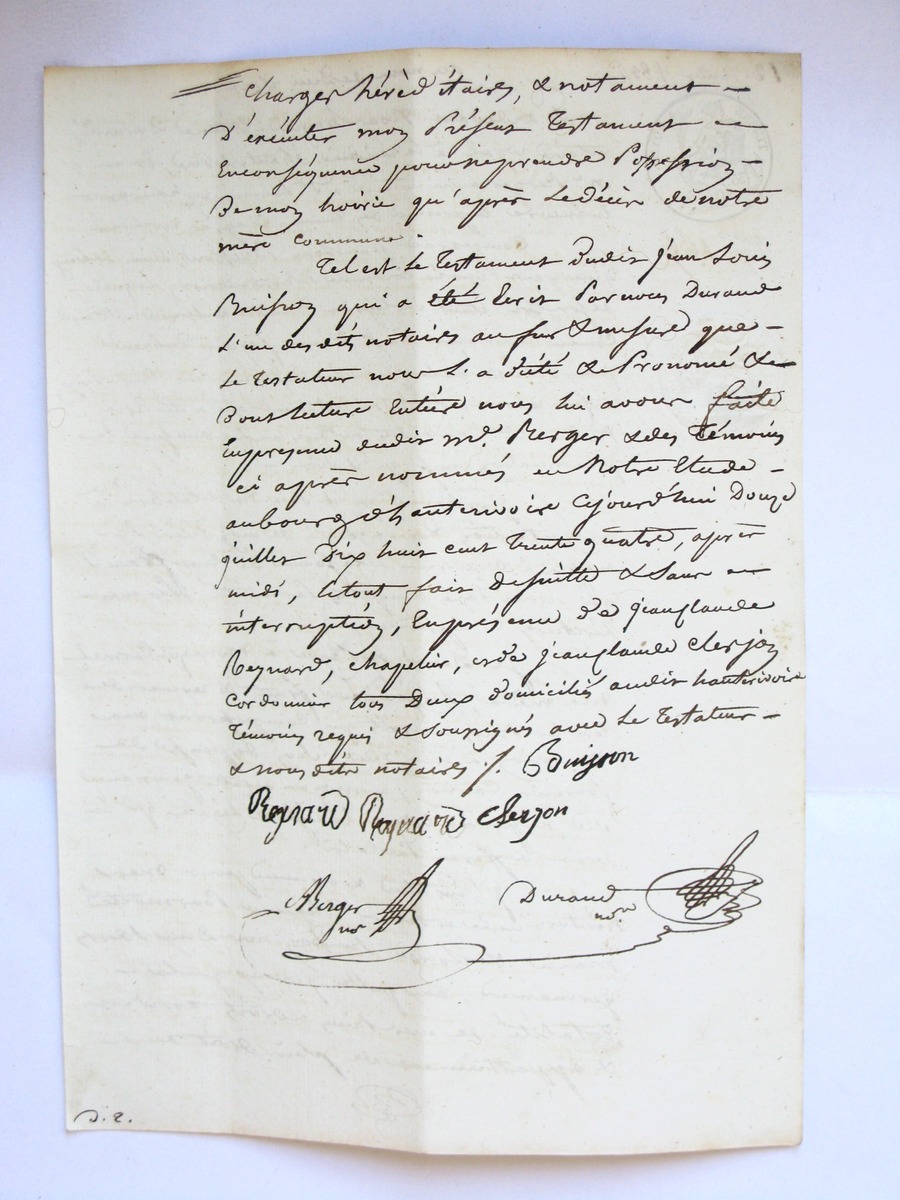 Charges héréditaires, & notament
D'exécuter moy Présent Testament
En conséquence pour ne prendre Possession
De moy hoirie qu'après Le décès de notre
mère commune
Tel est Le Testament dudit Jean Louis
Buisson qui a été Ecrit Par nous Durand
L'un des dits notaires au fur & mesure que
Le Testateur nous L'a dicté & Prononcé &
Dont lecture Entière nous lui avons faite
En presence dudit Me. Berger & des Témoins
ci après nommés en Notre Etude
au bourg d'hauterivoire Cejourd'hui Douze
juillet Dix huit cent Trente quatre, après
midi, Le tout fait De suitte & Sans
interruption, En présence de jean claude
Reynard, chapelier, & de jean claude Clerjon
Cordonnier tous Deux domiciliés audit hauterivoire
Témoins requis & Soussignés avec Le Testateur
& nous dits notaires ./. Buisson
Reynard Reynard Clerjon
Berger Durand
nre nore
D. 2.